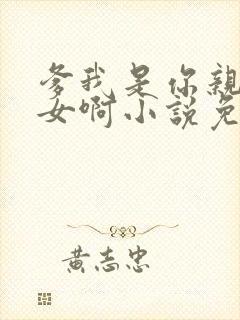 爹我是你親
女啊小說免
黃志忠